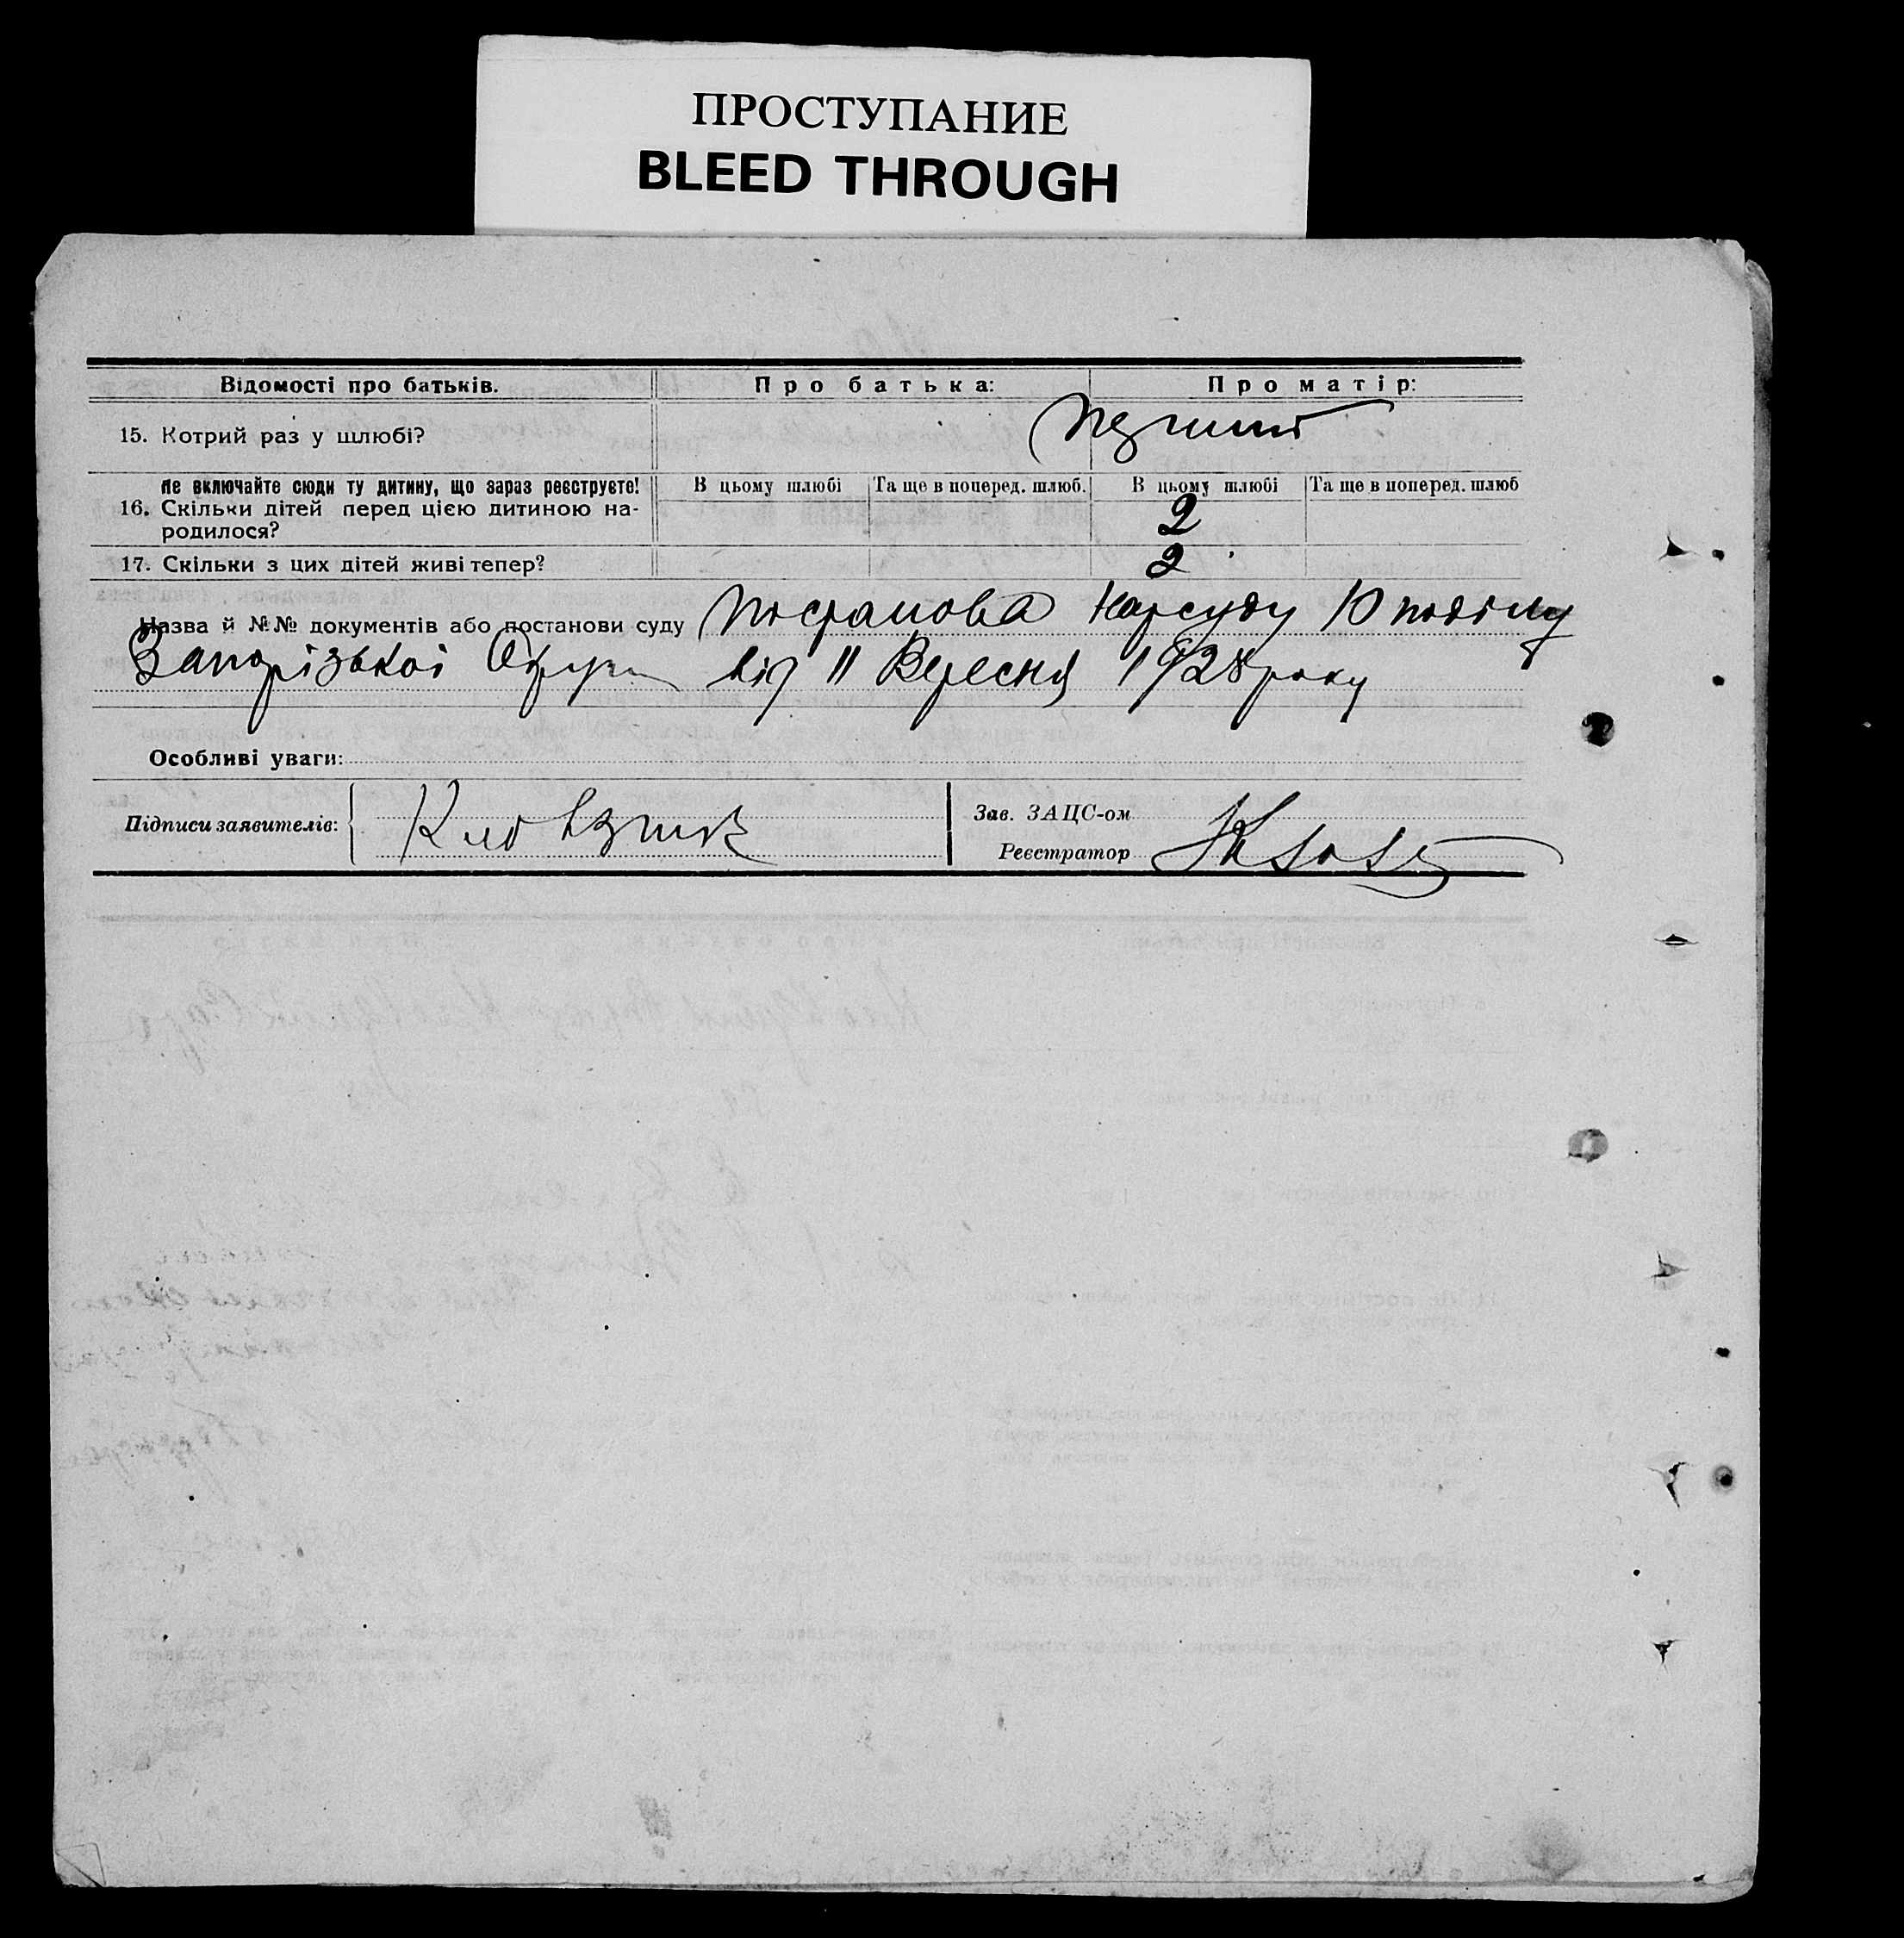 ПРОСТУПАНИЕ
BLEED THROUGH
Відомості про батьків. Про батька: Про матір:
15. Котрий раз у шлюбі?
Не включайте сюди ту дитину, що зараз реєструєте! В цьому шлюбі Та ще в поперед. шлюб. В цьому шлюбі Та ще в поперед. шлюб
16. Скільки дітей перед цією дитиною на-
родилося? 2
17. Скільки з цих дітей живі тепер? 2
Назва й №№ документів або постанови суду Постанова Нарсуду 10 поділу
Запорізької Округи від 11 Вересня 1928 року
Особливі уваги:
Підписи заявителів:
Зав. ЗАЦС-ом
Реєстратор